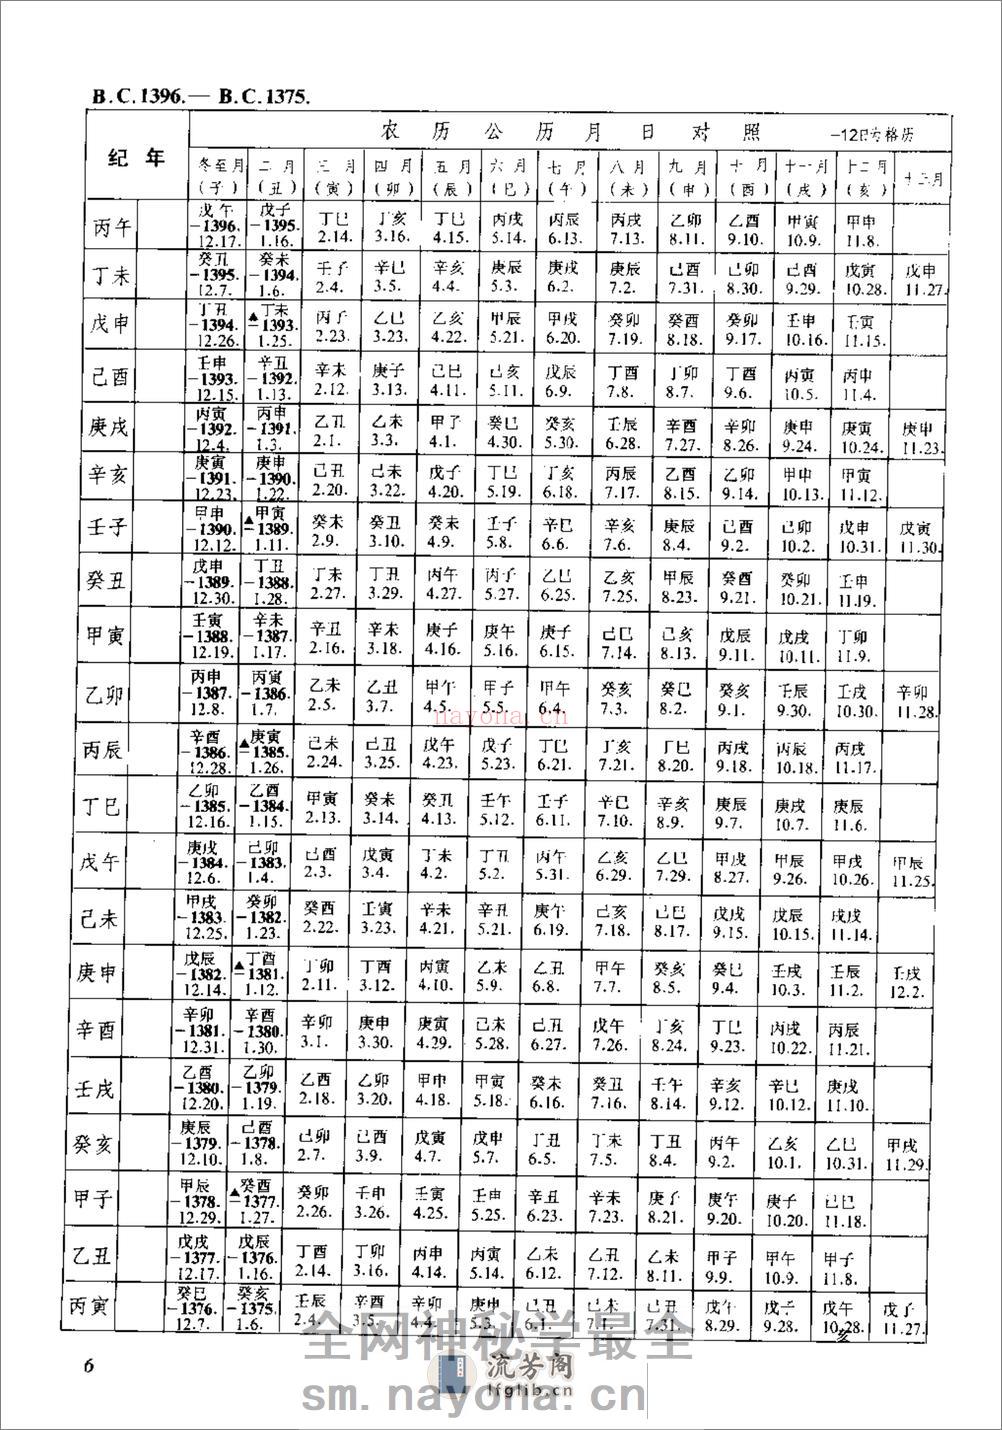 B.C.1396.— B.C.1375.
纪年 农历公历月日对照
冬至月 二月 三月 四月 五月 六月 七月 八月 九月 十月 十一月 十二月 十三月
(子) (丑) (寅) (卯) (辰) (巳) (午) (未) (申) (酉) (戌) (亥)
戊午 戊子
丙午 -1396. -1395. 丁巳 丁亥 丁巳 丙戌 丙辰 丙戌 乙卯 乙酉 甲寅 甲申
12.17. 1.16. 2.14. 3.16. 4.15. 5.14. 6.13. 7.13. 8.11. 9.10. 10.9. 11.8.
癸丑 癸未
丁未 -1395. -1394. 壬子 辛巳 辛亥 庚辰 庚戌 庚辰 己酉 己卯 己酉 戊寅 戊申
12.7. 1.6. 2.4. 3.5. 4.4. 5.3. 6.2. 7.2. 7.31. 8.30. 9.29. 10.28. 11.27.
丁丑 ▲丁未
戊申 -1394. -1393. 丙子 乙巳 乙亥 甲辰 甲戌 癸卯 癸酉 癸卯 壬申 壬寅
12.26. 1.25. 2.23. 3.23. 4.22. 5.21. 6.20. 7.19. 8.18. 9.17. 10.16. 11.15.
壬申 辛丑
己酉 -1393. -1392. 辛未 庚子 己巳 己亥 戊辰 丁酉 丁卯 丁酉 丙寅 丙申
12.15. 1.13. 2.12. 3.13. 4.11. 5.11. 6.9. 7.8. 8.7. 9.6. 10.5. 11.4.
丙寅 丙申
庚戌 -1392. -1391. 乙丑 乙未 甲子 癸巳 癸亥 壬辰 辛酉 辛卯 庚申 庚寅 庚申
12.4. 1.3. 2.1. 3.3. 4.1. 4.30. 5.30. 6.28. 7.27. 8.26. 9.24. 10.24. 11.23.
庚寅 庚申
辛亥 -1391. -1390. 己丑 己未 戊子 丁巳 丁亥 丙辰 乙酉 乙卯 甲申 甲寅
12.23. 1.22. 2.20. 3.22. 4.20. 5.19. 6.18. 7.17. 8.15. 9.14. 10.13. 11.12.
甲申 ▲甲寅
壬子 -1390. -1389. 癸未 癸丑 癸未 壬子 辛巳 辛亥 庚辰 己酉 己卯 戊申 戊寅
12.12. 1.11. 2.9. 3.10. 4.9. 5.8. 6.6. 7.6. 8.4. 9.2. 10.2. 10.31. 11.30.
戊申 丁丑
癸丑 -1389. -1388. 丁未 丁丑 丙午 丙子 乙巳 乙亥 甲辰 癸酉 癸卯 壬申
12.30. 1.28. 2.27. 3.29. 4.27. 5.27. 6.25. 7.25. 8.23. 9.21. 10.21. 11.19.
壬寅 辛未
甲寅 -1388. -1387. 辛丑 辛未 庚子 庚午 庚子 己巳 己亥 戊辰 戊戌 丁卯
12.19. 1.17. 2.16. 3.18. 4.16. 5.16. 6.15. 7.14. 8.13. 9.11. 10.11. 11.9.
丙申 丙寅
乙卯 -1387. -1386. 乙未 乙丑 甲午 甲子 甲午 癸亥 癸巳 癸亥 壬辰 壬戌 辛卯
12.8. 1.7. 2.5. 3.7. 4.5. 5.5. 6.4. 7.3. 8.2. 9.1. 9.30. 10.30. 11.28.
nayona.cn
辛酉 ▲庚寅
丙辰 -1386. -1385. 己未 己丑 戊午 戊子 丁巳 丁亥 丁巳 丙戌 丙辰 丙戌
12.28. 1.26. 2.24. 3.25. 4.23. 5.23. 6.21. 7.21. 8.20. 9.18. 10.18. 11.17.
乙卯 乙酉
丁巳 -1385. -1384. 甲寅 癸未 癸丑 壬午 壬子 辛巳 辛亥 庚辰 庚戌 庚辰
12.16. 1.15. 2.13. 3.14. 4.13. 5.12. 6.11. 7.10. 8.9. 9.7. 10.7. 11.6.
庚戌 己卯
戊午 -1384. -1383. 己酉 戊寅 丁未 丁丑 丙午 乙亥 乙巳 甲戌 甲辰 甲戌 甲辰
12.6. 1.4. 2.3. 3.4. 4.2. 5.2. 5.31. 6.29. 7.29. 8.27. 9.26. 10.26. 11.25.
甲戌 癸卯
己未 -1383. -1382. 癸酉 壬寅 辛未 辛丑 庚午 己亥 己巳 戊戌 戊辰 戊戌
12.25. 1.23. 2.22. 3.23. 4.21. 5.21. 6.19. 7.18. 8.17. 9.15. 10.15. 11.14.
戊辰 ▲丁酉
庚申 -1382. -1381. 丁卯 丁酉 丙寅 乙未 乙丑 甲午 癸亥 癸巳 壬戌 壬辰 壬戌
12.14. 1.12. 2.11. 3.12. 4.10. 5.9. 6.8. 7.7. 8.5. 9.4. 10.3. 11.2. 12.2.
辛卯 辛酉
辛酉 -1381. -1380. 辛卯 庚申 庚寅 己未 己丑 戊午 丁亥 丁巳 丙戌 丙辰
12.31. 1.30. 3.1. 3.30. 4.29. 5.28. 6.27. 7.26. 8.24. 9.23. 10.22. 11.21.
乙酉 乙卯
壬戌 -1380. -1379. 乙酉 乙卯 甲申 甲寅 癸未 癸丑 壬午 辛亥 辛巳 庚戌
12.20. 1.19. 2.18. 3.20. 4.18. 5.18. 6.16. 7.16. 8.14. 9.12. 10.12. 11.10.
庚辰 己酉
癸亥 -1379. -1378. 己卯 己酉 戊寅 戊申 丁丑 丁未 丁丑 丙午 乙亥 乙巳 甲戌
12.10. 1.8. 2.7. 3.9. 4.7. 5.7. 6.5. 7.5. 8.4. 9.2. 10.1. 10.31. 11.29.
甲辰 ▲癸酉
甲子 -1378. -1377. 癸卯 壬申 壬寅 壬申 辛丑 辛未 庚子 庚午 庚子 己巳
12.29. 1.27. 2.26. 3.26. 4.25. 5.25. 6.23. 7.23. 8.21. 9.20. 10.20. 11.18.
戊戌 戊辰
乙丑 -1377. -1376. 丁酉 丁卯 丙申 丙寅 乙未 乙丑 乙未 甲子 甲午 甲子
12.17. 1.16. 2.14. 3.16. 4.14. 5.14. 6.12. 7.12. 8.11. 9.9. 10.9. 11.8.
癸巳 癸亥
丙寅 -1376. -1375. 壬辰 辛酉 辛卯 庚申 己丑 己未 己丑 戊午 戊子 戊午 戊子
12.7. 1.6. 2.4. 3.5. 4.4. 5.3. 6.1. 7.1. 7.31. 8.29. 9.28. 10.28. 11.27.
全网神秘学最全
6 流芳阁
lfglib.cn
sm.nayona.cn